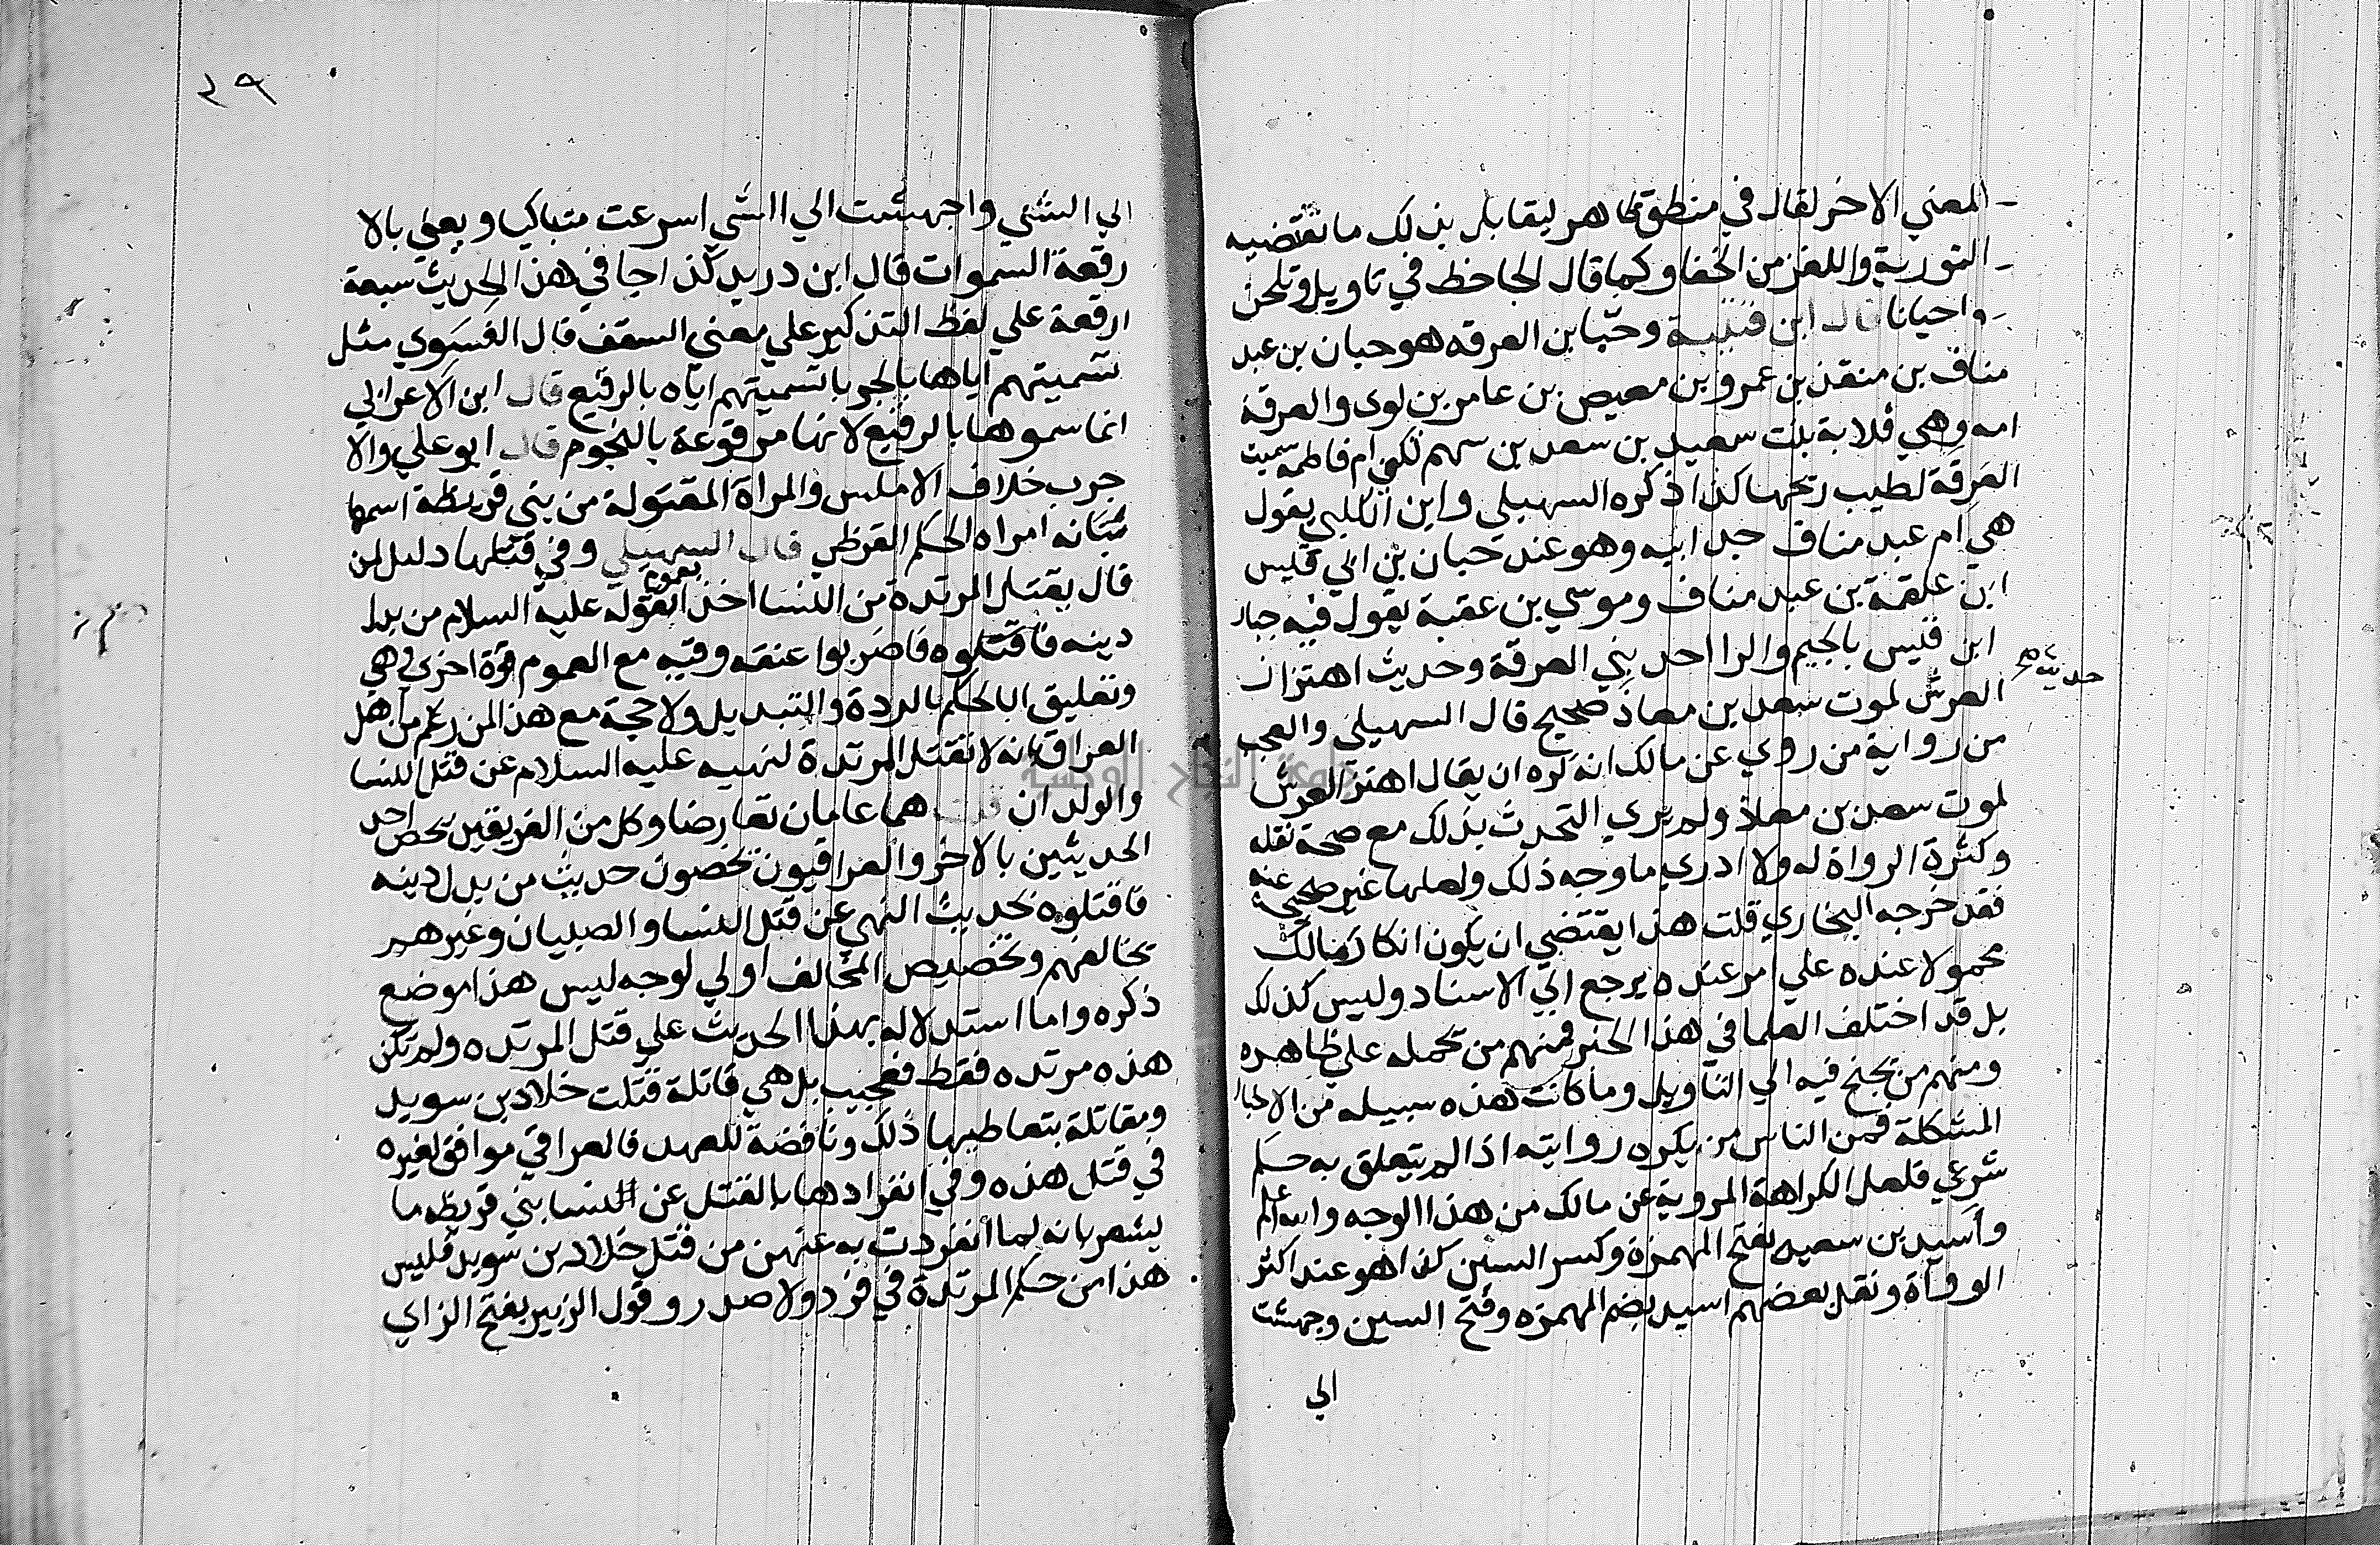 المعني الاخر لقال في منطق ظاهر ليقابل بذلك ما تقتضيه
التورية واللغز من الخفا وكما قال الجاحظ في تاويل وتلحن
واحيانا قال ابن قتيبة وحبا بن العرقه هو حبان بن عبد
مناف بن منقذ بن عمرو بن معيص بن عامر بن لوي والعرقة
امه وهي قلابة بنت سعيد بن سعد بن سهم تكني ام فاطمة سميت
العرقة لطيب ريحها كذا ذكره السهيلي وابن الكلبي يقول
هي ام عبد مناف جد ابيه وهو عند حبان بن ابي قيس
ابن علقمة بن عبد مناف وموسي بن عقبة يقول فيه جبار
ابن قيس بالجيم والرا احد بني العرقة وحديث اهتزاز
حديث
العرش لموت سعد بن معاذ صحيح قال السهيلي والعجب
من رواية من روي عن مالك انه كره ان يقال اهتز العرش
لموت سعد بن معاذ ولم يري التحدث بذلك مع صحة نقله
وكثرة الرواة له ولا ادري ما وجه ذلك ولعلها غير صحيحة عنه
فقد خرجه البخاري قلت هذا يقتضي ان يكون انكار مالك
محمولا عنده علي امر عنده يرجع الي الاسناد وليس كذلك
بل قد اختلف العلما في هذا الخبر فمنهم من يحمله علي ظاهره
ومنهم من يجنح فيه الي التاويل وما كانت هذه سبيله من الاخبار
المشكلة فمن الناس من يكره روايته اذا لم يتعلق به حكم
شرعي فلعل الكراهة المروية عن مالك من هذا الوجه والله اعلم
واسيد بن سعيه بفتح الهمزة وكسر السين كذا هو عند اكثر
الرواة ونقل بعضهم اسيد بضم الهمزه وفتح السين وجهشت
الي
٢٩
الي الشي واجهشت الي الشي اسرعت متباكيا ويعني بالا
رقعة السموات قال ابن دريد كذا جا في هذا الحديث سبعة
ارقعة علي لفظ التذكير علي معني السقف قال الفسوي مثل
تسميتهم اياها بالجربا تسميتهم اياه بالرقيع قال ابن الاعرابي
انما سموها بالرقيع لانها مرقوعة بالنجوم قال ابو علي والا
جرب خلاف الاملس والمراة المقتولة من بني قريظة اسمها
بنانه امراه الحكم القرظي قال السهيلي وفي قتلها دليل لمن
قال بقتل المرتدة من النسا اخذا بعموم قوله عليه السلام من بدل
دينه فاقتلوه فاضربوا عنقه وفيه مع العموم قوة اخري وهي
وتعليق الحكم بالردة والتبديل ولا حجة مع هذا لمن زعم من اهل
العراق بانه لا تقتل المرتدة لنهيه عليه السلام عن قتل النسا
والولدان قلت هما عامان تعارضا وكل من الفريقين يخص احد
الحديثين بالاخر والعراقيون يخصون حديث من بدل دينه
فاقتلوه بحديث النهي عن قتل النسا والصبيان وغيرهم
يخالفهم وتخصيص المخالف اولي لوجه ليس هذا موضع
ذكره واما استدلاله بهذا الحديث علي قتل المرتده ولم تكن
هذه مرتده فقط فعجيب بل هي قاتلة قتلت خلاد بن سويد
ومقاتلة بتعاطيها ذلك وناقضة للعهد فالعراقي موافق لغيره
في قتل هذه وفي انفرادها بالقتل عن نسا بني قريظه ما
يشعر بانه لما انفردت به عنهن من قتل خلاد بن سويد فليس
هذا من حكم المرتدة في فرد ولا صدر وقول الزبير بفتح الزاي